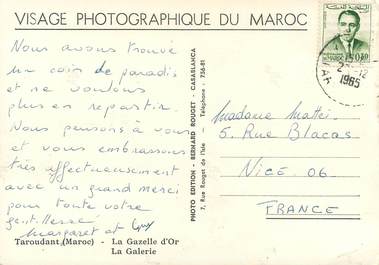 VISAGE PHOTOGRAPHIQUE DU MAROC
Nous avons trouvé
un coin de paradis
et ne voulons
plus en repartir.
Nous pensons à vous
et vous embrassons
très affectueusement
avec un grand merci
pour toute votre
gentillesse
Margaret et Guy
Taroudant (Maroc) - La Gazelle d'Or
La Galerie
PHOTO EDITION - BERNARD ROUGET - CASABLANCA
7, Rue Rouget de l'Isle - Téléphone : 736-81
0,80
1965
Madame Mattei
5, Rue Blacas
NICE. 06
FRANCE